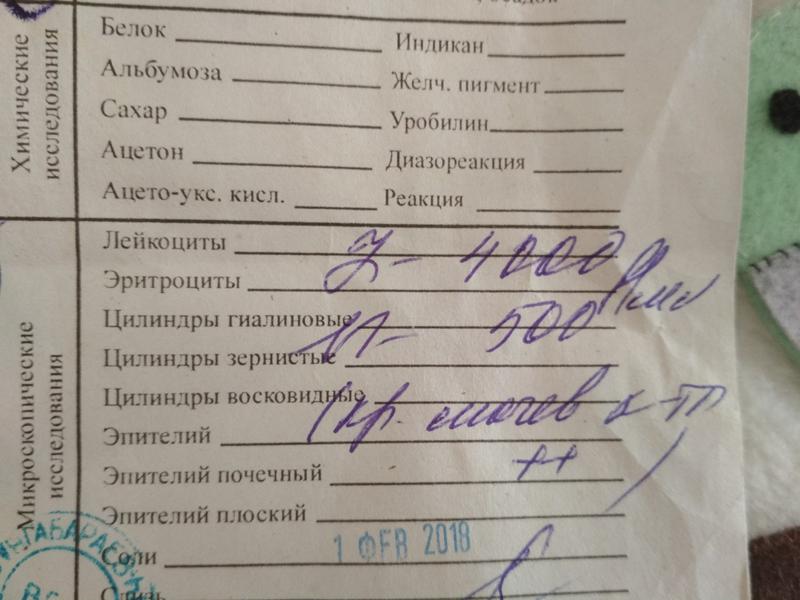 Химические исследования
Белок
Индикан
Альбумоза
Желч. пигмент
Сахар
Уробилин
Ацетон
Диазореакция
Ацето-укс. кисл.
Реакция
Микроскопические исследования
Лейкоциты
4000
Эритроциты
Цилиндры гиалиновые
500
Цилиндры зернистые
Цилиндры восковидные
(кр. мочев к-ты
Эпителий
Эпителий почечный
++)
Эпителий плоский
1 ФЕВ 2018
Соли
Слизь